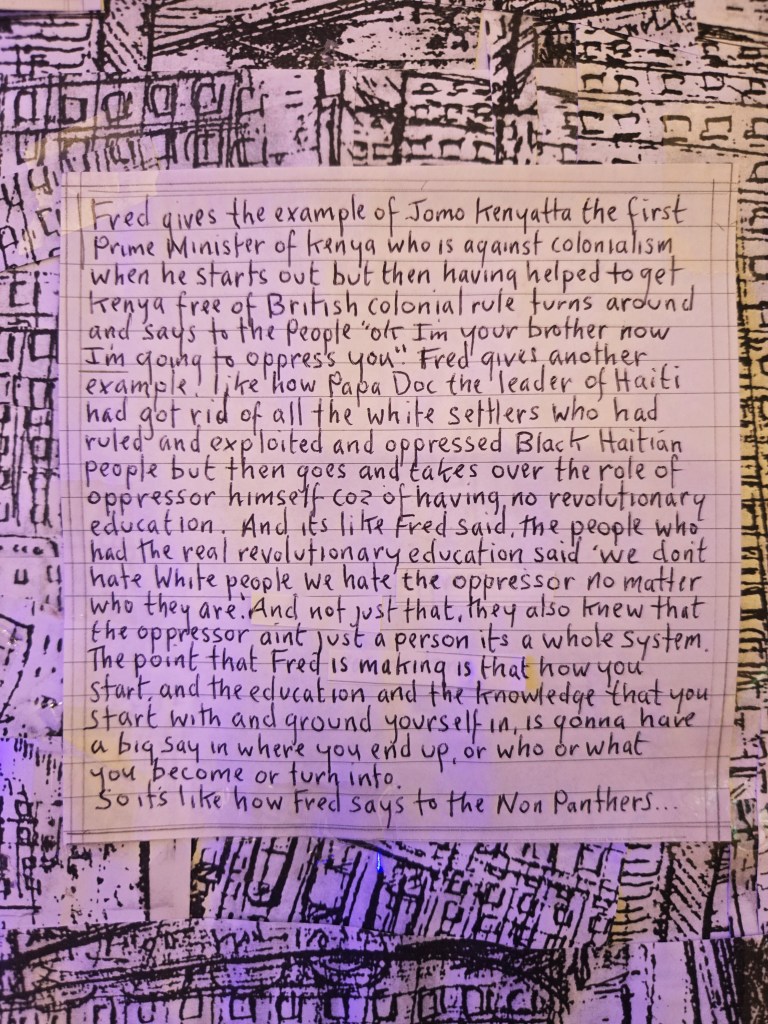 Fred gives the example of Jomo Kenyatta the first
Prime Minister of Kenya who is against colonialism
when he starts out but then having helped to get
Kenya free of British colonial rule turns around
and says to the People "ok I'm your brother now
I'm going to oppress you". Fred gives another
example! like how Papa Doc the leader of Haiti
had got rid of all the white settlers who had
ruled and exploited and oppressed Black Haitian
people but then goes and takes over the role of
oppressor himself coz of having no revolutionary
education. And its like Fred said, the people who
had the real revolutionary education said 'we don't
hate White people we hate the oppressor no matter
who they are'. And not just that, they also knew that
the oppressor aint just a person its a whole system.
The point that Fred is making is that how you
start, and the education and the knowledge that you
start with and ground yourself in, is gonna have
a big say in where you end up, or who or what
you become or turn into.
So it's like how Fred says to the Non Panthers...